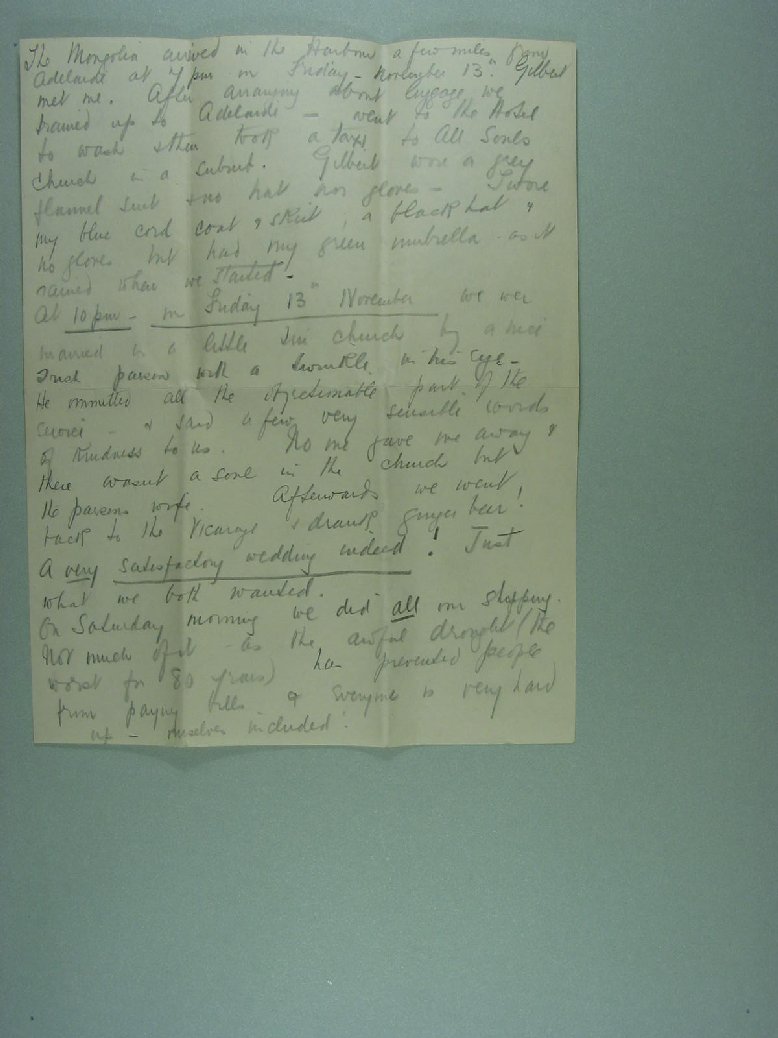 The Mongolia arrived in the Harbour a few miles from
Adelaide at 7 pm on Friday – November 13th. Gilbert
met me. After arranging about luggage we
trained up to Adelaide – went to the Hotel
to wash & then took a taxi to All Souls
Church in a suburb. Gilbert wore a grey
flannel suit & no hat nor gloves – I wore
my blue cord coat & skirt, a black hat &
no gloves but had my green umbrella – as it
rained when we started –
At 10 pm – on Friday 13th November we were
married in a little tin church by a nice
Irish parson with a twinkle in his eye –
He ommitted all the objectionable part of the
service – & said a few very sensible words
of kindness to us. No one gave me away &
there wasn't a soul in the church but
the parsons wife. Afterwards we went
back to the Vicarage & drank ginger beer!
A very satisfactory wedding indeed! Just
what we both wanted.
On Saturday morning we did all our shopping.
Not much of it – as the awful drought (the
worst for 80 years) has prevented people
from paying bills & everyone is very hard
up – ourselves included!